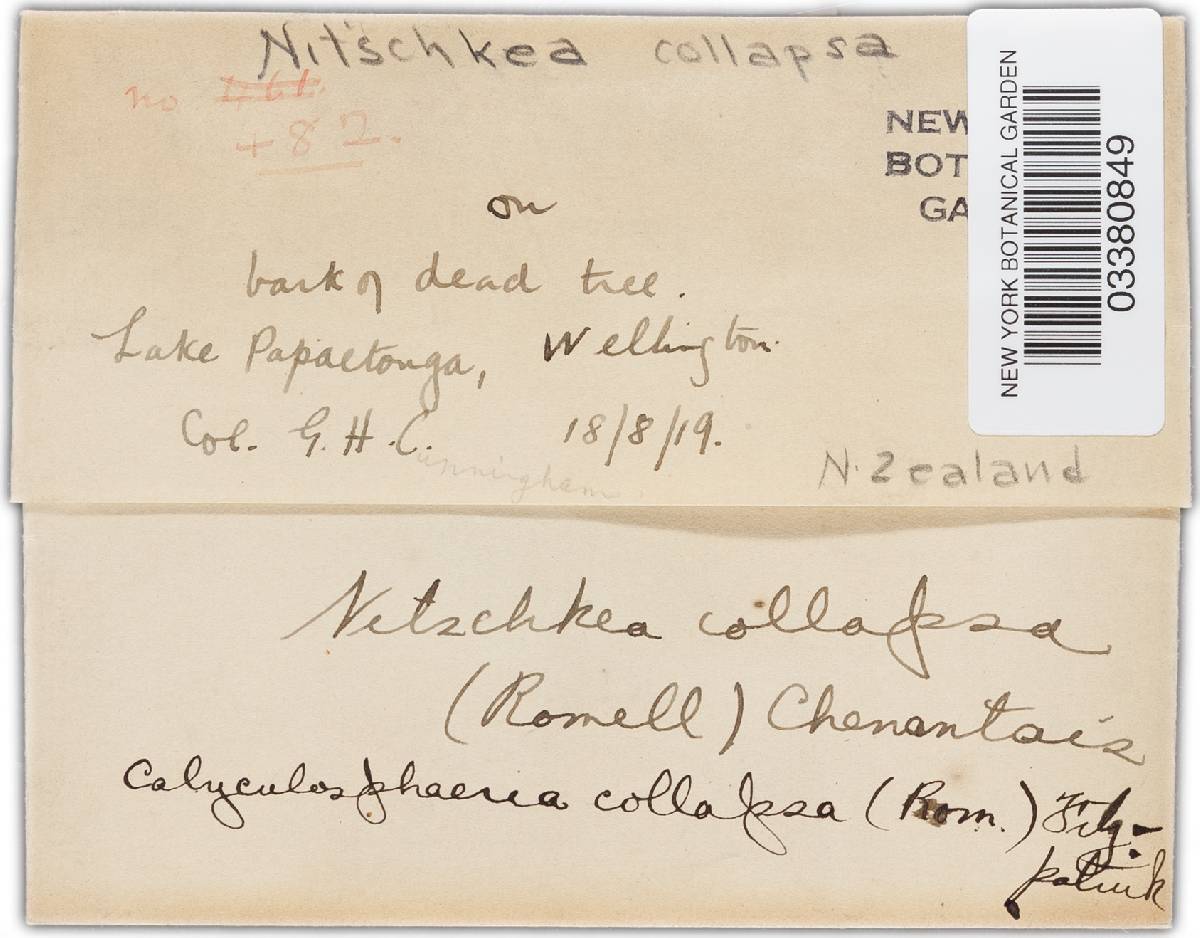 Nitschkea collapsa
no
+82.
NEW
BOT
GA
on
bark of dead tree.
Lake Papaetonga, Wellington.
Col. G. H. Cunningham 18/8/19.
N. Zealand
NEW YORK BOTANICAL GARDEN
03380849
Nitschkea collapsa
(Romell) Chenantais
Calyculosphaeria collapsa (Rom.) Fitz-
patrick